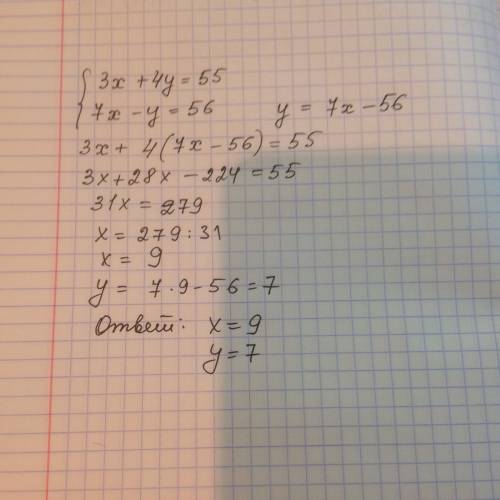 3x + 4y = 55
7x - y = 56 y = 7x - 56
3x + 4(7x - 56) = 55
3x + 28x - 224 = 55
31x = 279
x = 279 : 31
x = 9
y = 7 · 9 - 56 = 7
Ответ: x = 9
y = 7